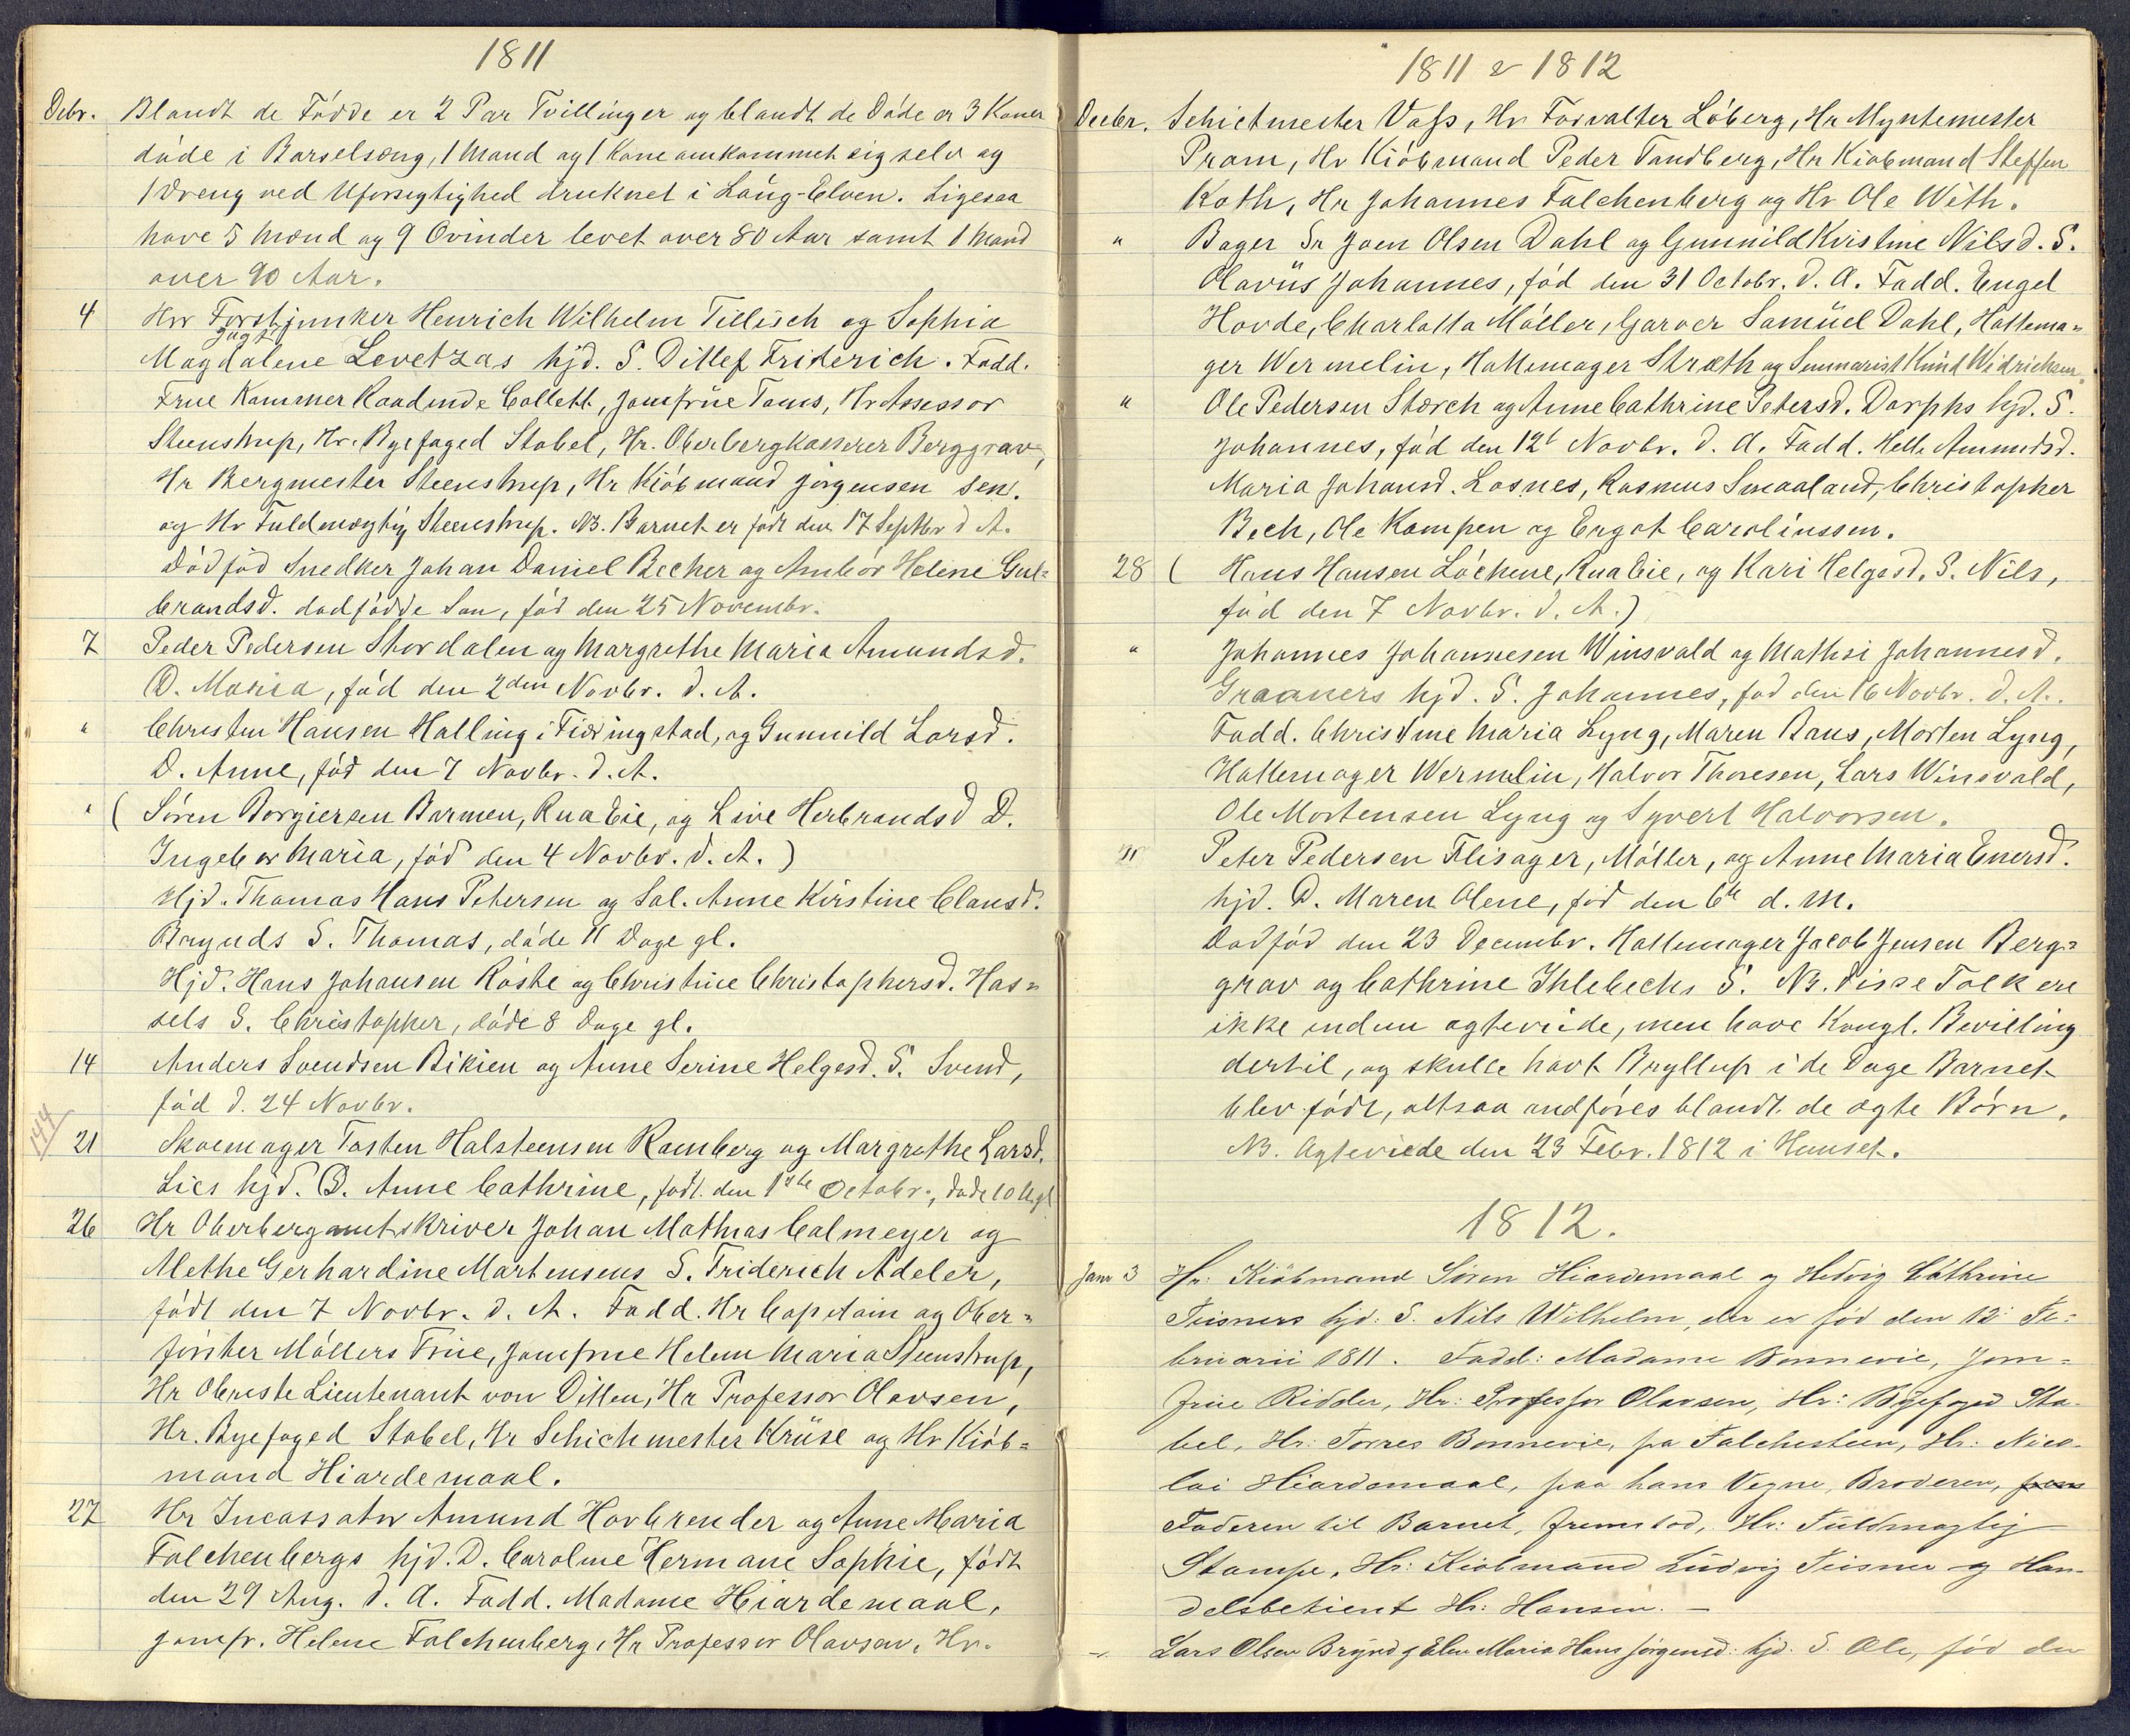 1811
Debr. Blandt de Fødde er 2 Par Tvillinger og blandt de Døde er 3 Koner
døde i Barselseng, 1 Mand og 1 Kone omkommet sig selv og
1 Dreng ved Uforsigtighed druknet i Laug-Elven. Ligesaa
have 5 Mænd og 9 Qvinder levet over 80 Aar samt 1 Mand
over 90 Aar.
4 Hrr Forstjunker Henrich Wilhelm Tillisch og Sophia
Jagt
Magdalene Levetzas hjd. S. Ditlef Friderich. Fadd.
Frue Kammer Raadinde Collett, Jomfrue Tams, Hr Assessor
Steenstrup, Hr. Byefoged Stabel, Hr. Oberbergkasserer Berggrav,
Hr Bergmester Steenstrup, Hr Kiøbmand Jørgensen sen.
og Hr Fuldmægtig Steenstrup. NB. Barnet er født den 17 Septbr d. A.
Dødfød Snedker Johan Daniel Becher og Anbør Helene Gul=
brandsd. dødfødde Søn, fød den 25 Novembr.
7 Peder Pedersen Stordalen og Margrethe Maria Amundsd.
D. Maria, fød den 2den Novbr. d. A.
" Christen Hansen Halling i Fiæringstad, og Gunnild Larsd.
D. Anne, fød den 7 Novbr. d. A.
" ( Søren Borgiersen Barmen, Rua Eie, og Live Herbrandsd D.
Ingebor Maria, fød den 4 Novbr. d. A. )
Hjd. Thomas Hans Petersen og Sal. Anne Kirstine Clausd.
Brynds S. Thomas, døde 11 Dage gl.
Hjd. Hans Johansen Røste og Christine Christophersd. Has=
sels S. Christopher, døde 8 Dage gl.
14 Anders Svendsen Bikien og Anne Serine Helgesd. S. Svend,
fød d. 24 Novbr.
144
21 Skoemager Tosten Halsteensen Ramberg og Margrethe Larsd.
Lies hjd. D. Anne Cathrine, født den 1ste Octobr., døde 10 U. gl
26 Hr Oberbergamtskriver Johan Mathias Calmeyer og
Methe Gerhardine Martensens S. Friderich Adeler,
født den 7 Novbr. d. A. Fadd. Hr Capitain og Ober=
førster Møllers Frue, Jomfrue Helene Maria Steenstrup,
Hr Obriste Lieutenant von Ditten, Hr Professor Olavsen,
Hr. Byefoged Stabel, Hr Schichmester Krüse og Hr Kiøb=
mand Hiardemaal.
27 Hr Incassator Amund Hovbrender og Anne Maria
Falchenbergs hjd. D. Caroline Hermane Sophie, født
den 29 Aug. d. A. Fadd. Madame Hiardemaal,
Jomfr. Helene Falchenberg, Hr Professor Olavsen, Hr.
1811 & 1812
Decbr. Schictmester Vass, Hr Forvalter Løberg, Hr Myntemester
Pram, Hr Kiøbmand Peder Tandberg, Hr Kiøbmand Steffen
Roth, Hr Johannes Falchenberg og Hr Ole With.
" Bager Sr Joen Olsen Dahl og Gunnild Kristine Nilsd. S.
Olavüs Johannes, fød den 31 Octobr. d. A. Fadd. Engel
Hovde, Charlotta Møller, Garver Samüel Dahl, Hattema=
ger Wermelin, Hattemager Stræth og Seminarist Knud Widrichsen
" Ole Pedersen Stærch og Anne Cathrine Petersd. Dorphs hjd. S.
Johannes, fød den 12t Novbr. d. A. Fadd. Helle Amundsd.
Maria Johansd. Losnes, Rasmus Smaaland, Christopher
Bech, Ole Kampen og Engot Carolinssen.
28 ( Hans Hansen Løchene, Rua Eie, og Kari Helgesd. S. Nils,
fød den 7 Novbr. d. A. )
" Johannes Johannesen Winsvald og Mathia Johannesd.
Graaners hjd. S. Johannes, fød den 16 Novbr. d. A.
Fadd. Christine Maria Lyng, Maren Baus, Morten Lyng,
Hattemager Wermelin, Halvor Thoresen, Lars Winsvald,
Ole Mortensen Lyng og Syvert Halvorsen.
" Peter Pedersen Flisager, Møller, og Anne Maria Enersd.
hjd. D. Maren Olene, fød den 6te d. M.
Dødfød den 23 Decembr. Hattemager Jacob Jensen Berg=
grav og Cathrine Ihlebechs S. NB. Disse Folk ere
ikke endnu ægteviede, men have Kongl. Bevilling
dertil, og skulle havt Bryllup i de Dage Barnet
blev født, altsaa andføres blandt de ægte Børn.
NB. Ægteviede den 23 Febr. 1812 i Huuset.
1812.
Janr 3 Hr: Kiøbmand Søren Hiardemaal og Hedvig Cathrine
Teisners hjd: S. Nils Wilhelm, der er fød den 12' Fe=
bruarii 1811. Fadd: Madame Bonnevie, Jom=
frue Ridder, Hr: Professor Olavsen, Hr: Byefoged Sta-
bel, Hr: Torres Bonnevie, fra Falchesteen, Hr: Nico-
lai Hiardemaal, paa hans Vegne, Broderen,
Faderen til Barnet, fremstod, Hr: Fuldmægtig
Stampe, Hr: Kiøbmand Ludvig Teisner og Han-
delsbetient Hr: Hansen. —
" Lars Olsen Brynd og Elen Maria Hans Jørgensd: hjd. S. Ole, fød den